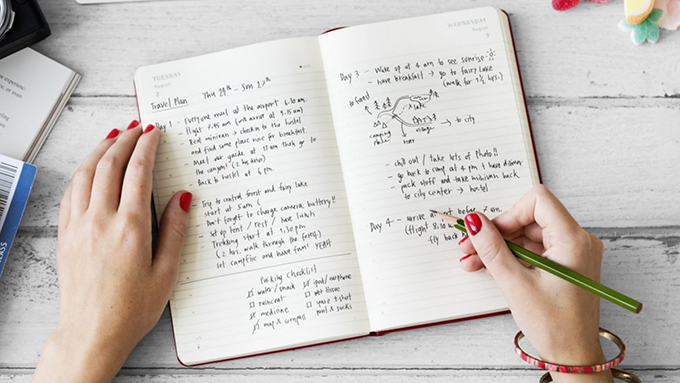 TUESDAY
August
2
Travel Plan Thu 14th - Sun 17th
Day 1 - Everyone meet at the airport 6.30 am
Flight 7.45 am (will arrive at 9.15 am)
Real minivan → checkin to the hostel
and find some place nice for breakfast.
- Meet our guide at 11 am then go to
the longest (2 hrs down)
- Back to hostel 6 pm
- Trip to central forest and fairy lake
start at 5 am (
Don't forget to change camera battery!!
Set up tent / rest / have lunch
Trekking start at 1.30 pm
(2 hrs walk through the forest)
set campfire and have fun! YEAH
Packing Checklist
water/snack
raincoat
medicine
map & compass
ipod/earphone
wet tissue
spare t-shirt
pant & socks
WEDNESDAY
August
3
Day 3 - Wake up at 4 am to see sunrise
- have breakfast → go to fairy lake
(walk for 1 1/2 hrs)
to forest
lake
camping place
village
→ to city
- chill out / take lots of photo!!
- go back to camp at 4 pm + have dinner
- pack stuff and take minivan back
to city center → hostel
Day 4 - arrive at before 7 am
(flight 8.30
fly back